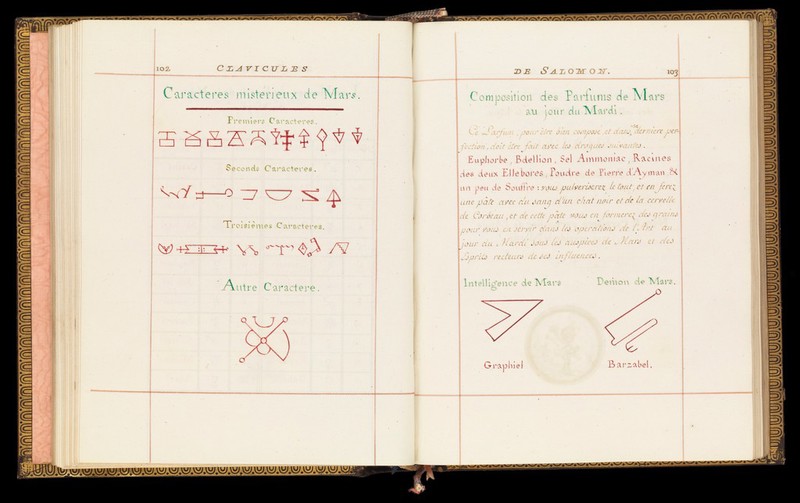 102
CLAVICULES
Caracteres misterieux de Mars.
Premiers Caracteres.
Seconds Caracteres.
Troisiémes Caracteres.
Autre Caractere.
DE SALOMON.
103
Composition des Parfums de Mars
au jour du Mardi.
Ce Parfum, pour être bien composé et dans derniere per-
fection, doit être fait avec les drogues suivantes.
Euphorbe, Bdellion, Sel Ammoniac, Racines
des deux Ellebores, Poudre de Pierre d'Ayman &
un peu de Souffre: vous pulveriserez le tout, et en ferez
une pâte avec du sang d'un chat noir et de la cervelle
de Corbeau, et de cette pâte vous en formerez des grains
pour vous en servir dans les operations de l'Art au
jour du Mardi sous les auspices de Mars et des
Esprits recteurs de ses influences.
Intelligence de Mars
Demon de Mars.
Graphiel
Barzabel.